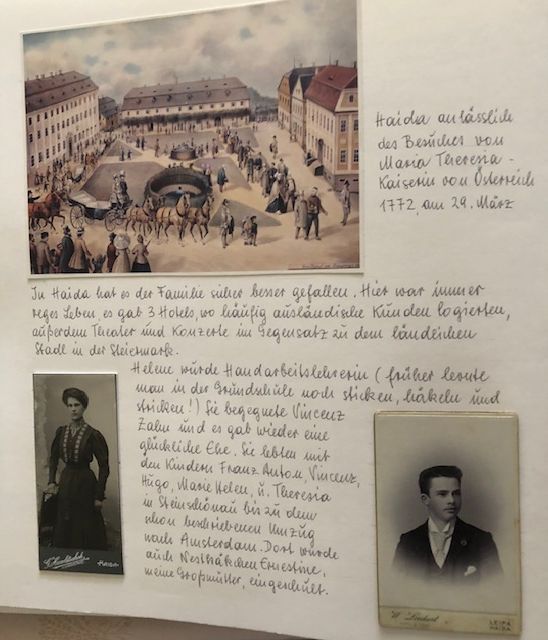 Haida anlässlich
des Besuches von
Maria Theresia -
Kaiserin von Österreich
1772, am 29. März
In Haida hat es der Familie sicher besser gefallen. Hier war immer
reges Leben, es gab 3 Hotels, wo häufig ausländische Kunden logierten,
außerdem Theater und Konzerte im Gegensatz zu dem ländlichen
Stadl in der Steiermark.
Helene wurde Handarbeitslehrerin (früher lernte
man in der Grundschule noch sticken, häkeln und
stricken!) Sie begegnete Vincenz
Zahn und es gab wieder eine
glückliche Ehe. Sie lebten mit
den Kindern Franz Anton, Vincenz,
Hugo, Marie Helen, u. Theresia
in Steinschönau bis zu dem
schon beschriebenen Umzug
nach Amsterdam. Dort wurde
auch Nesthäkchen Ernestine,
meine Großmutter, eingeschult.
HAIDA
LEIPA
HAIDA